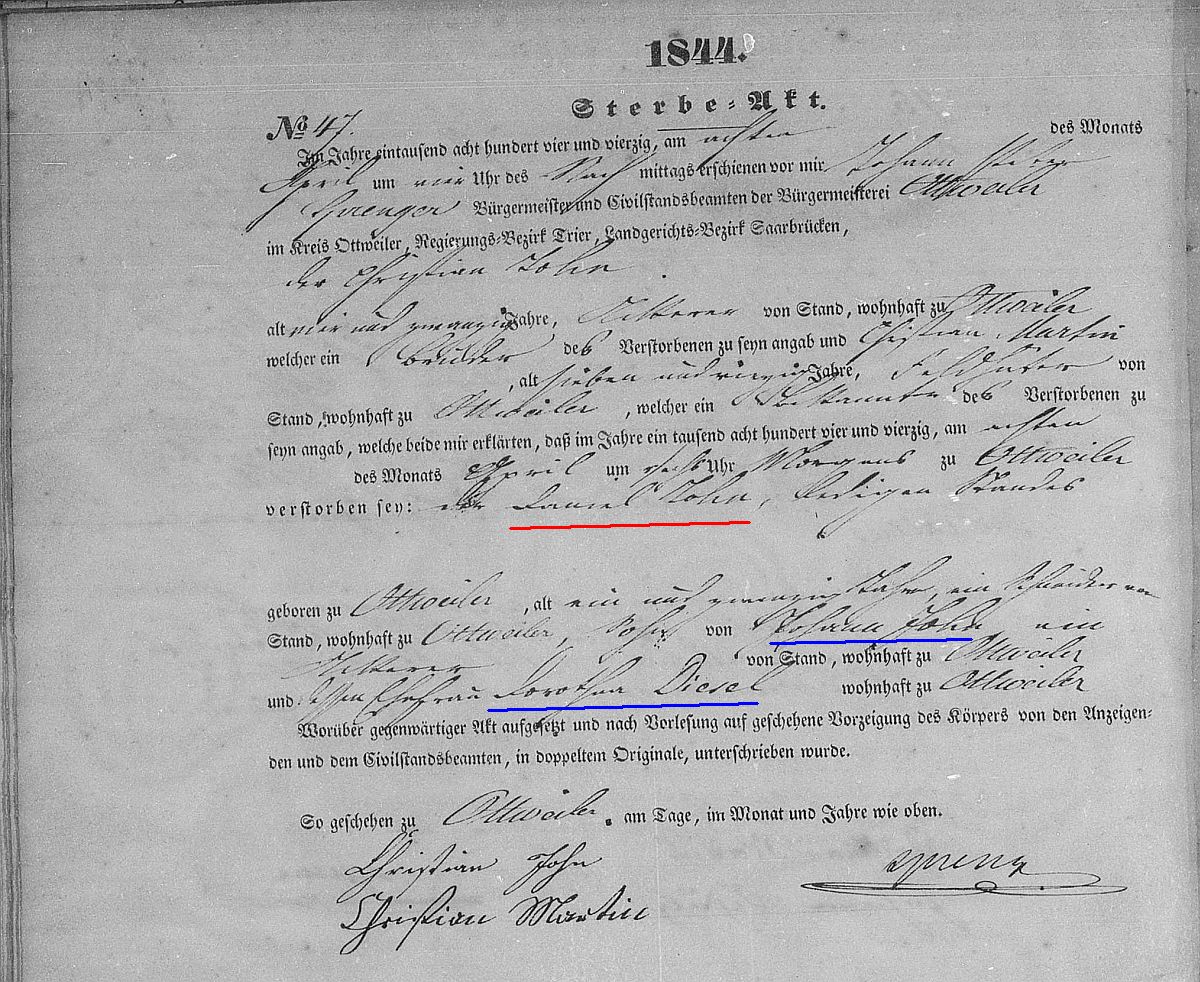 1844.
Sterbe-Akt.
No 47.
Im Jahre eintausend acht hundert vier und vierzig, am achten des Monats
April um vier Uhr des Nach mittags erschienen vor mir Johann Peter
Sprenger Bürgermeister und Civilstandsbeamten der Bürgermeisterei Ottweiler
im Kreis Ottweiler, Regierungs-Bezirk Trier, Landgerichts-Bezirk Saarbrücken,
der Christian John
alt vier und zwanzig Jahre, von Stand, wohnhaft zu Ottweiler
welcher ein Bruder des Verstorbenen zu seyn angab und Christian Martin
, alt sieben und vierzig Jahre, Feldhüter von
Stand, wohnhaft zu Ottweiler, welcher ein Bekannter des Verstorbenen zu
seyn angab, welche beide mir erklärten, daß im Jahre ein tausend acht hundert vier und vierzig, am achten
des Monats April um sechs Uhr Morgens zu Ottweiler
verstorben sey: der Daniel John, ledigen Standes
geboren zu Ottweiler, alt ein und zwanzig Jahre, ein Schneider von
Stand, wohnhaft zu Ottweiler, Sohn von Johann John ein
von Stand, wohnhaft zu Ottweiler
und Ehefrau Dorothea Diesel wohnhaft zu Ottweiler
Worüber gegenwärtiger Akt aufgesetzt und nach Vorlesung auf geschehene Vorzeigung des Körpers von den Anzeigen-
den und dem Civilstandsbeamten, in doppeltem Originale, unterschrieben wurde.
So geschehen zu Ottweiler, am Tage, im Monat und Jahre wie oben.
Christian John
Christian Martin